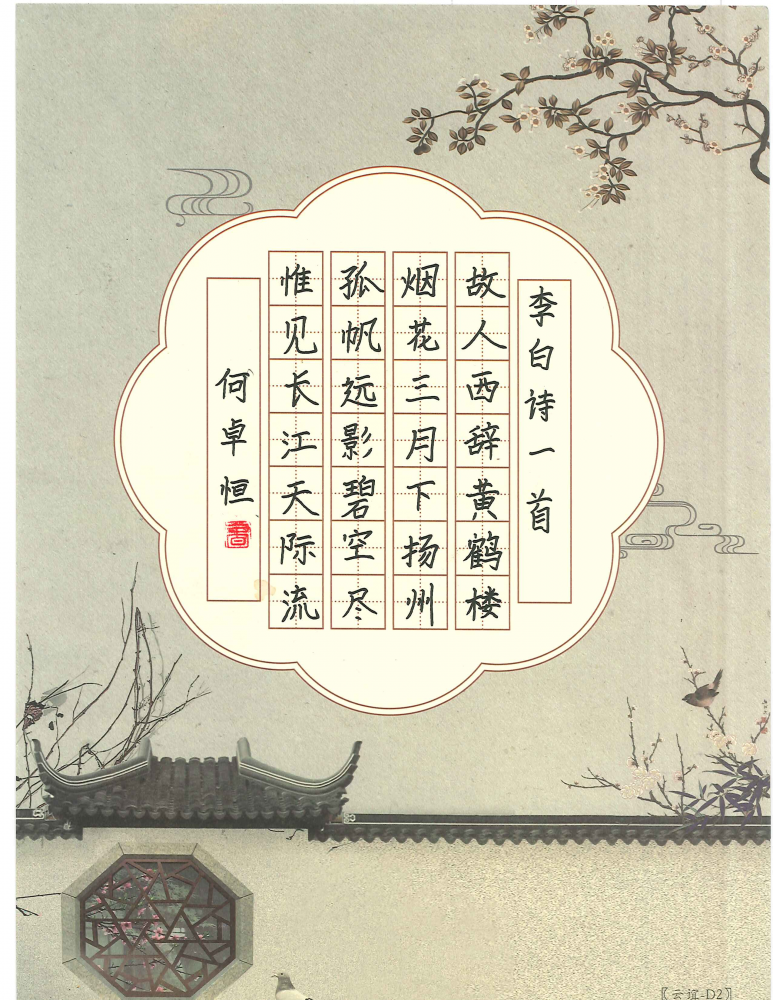 李白诗一首
故人西辞黄鹤楼
烟花三月下扬州
孤帆远影碧空尽
惟见长江天际流
何卓恒
〖云谊-D2〗